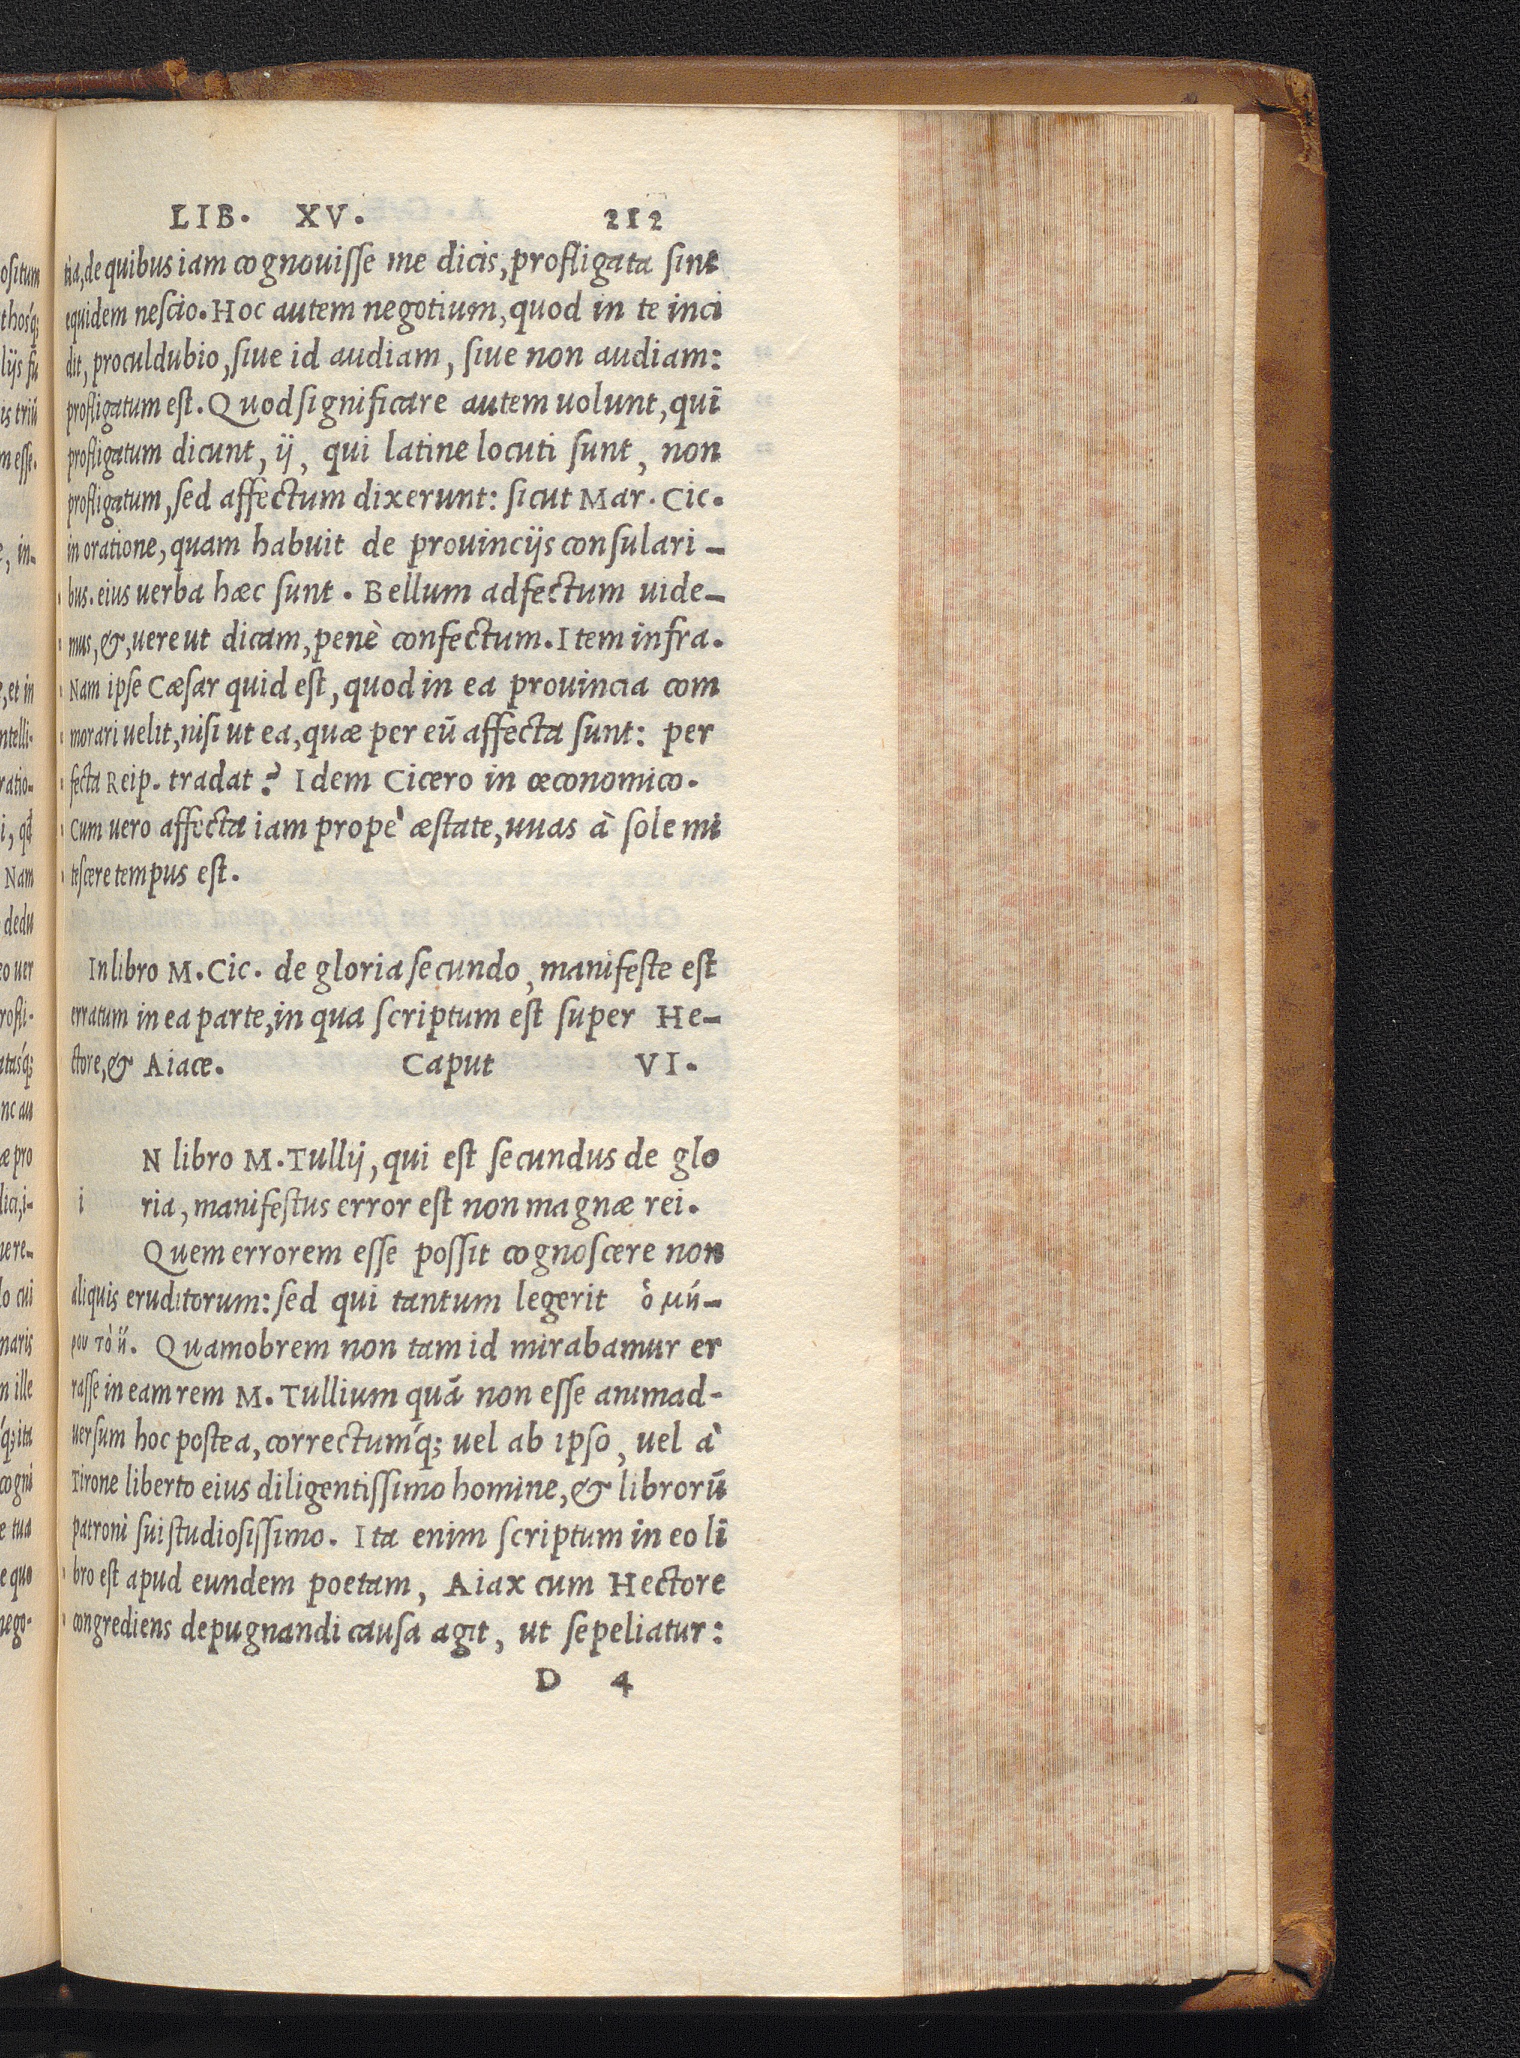 LIB. XV. 212
tia, de quibus iam cognouisse me dicis, profligata sint
equidem nescio. Hoc autem negotium, quod in te inci
dit, proculdubio, siue id audiam, siue non audiam:
profligatum est. Quod significare autem uolunt, qui
profligatum dicunt, ij, qui latine locuti sunt, non
profligatum, sed affectum dixerunt: sicut Mar. Cic.
in oratione, quam habuit de prouincijs consulari-
bus. eius uerba hæc sunt. Bellum adfectum uide-
mus, &, uere ut dicam, penè confectum. Item infra.
Nam ipse Cæsar quid est, quod in ea prouincia com
morari uelit, nisi ut ea, quæ per eũ affecta sunt: per
fecta Reip. tradat? Idem Cicero in œconomico.
Cum uero affecta iam propè æstate, uuas à sole mi
tescere tempus est.
In libro M. Cic. de gloria secundo, manifeste est
erratum in ea parte, in qua scriptum est super He-
ctore, & Aiace. Caput VI.
N libro M. Tullij, qui est secundus de glo
i ria, manifestus error est non magnæ rei.
Quem errorem esse possit cognoscere non
aliquis eruditorum: sed qui tantum legerit ὁ μή-
ρου τὸ ἥ. Quamobrem non tam id mirabamur er
rasse in eam rem M. Tullium quã non esse animad-
uersum hoc postea, correctumq́; uel ab ipso, uel à
Tirone liberto eius diligentissimo homine, & librorũ
patroni sui studiosissimo. Ita enim scriptum in eo li
bro est apud eundem poetam, Aiax cum Hectore
congrediens depugnandi causa agit, ut sepeliatur:
D 4
ositum
thosq́;
lijs fu
is triũ
m esse.
, in-
, et in
ntelli-
ratio-
Nam
dedu
eo uer
rofli-
atasq́;
nc au
æ pro
dici, i-
uere-
lo cui
naris
n ille
q́; ita
cogni
e tua
e quo
nego-